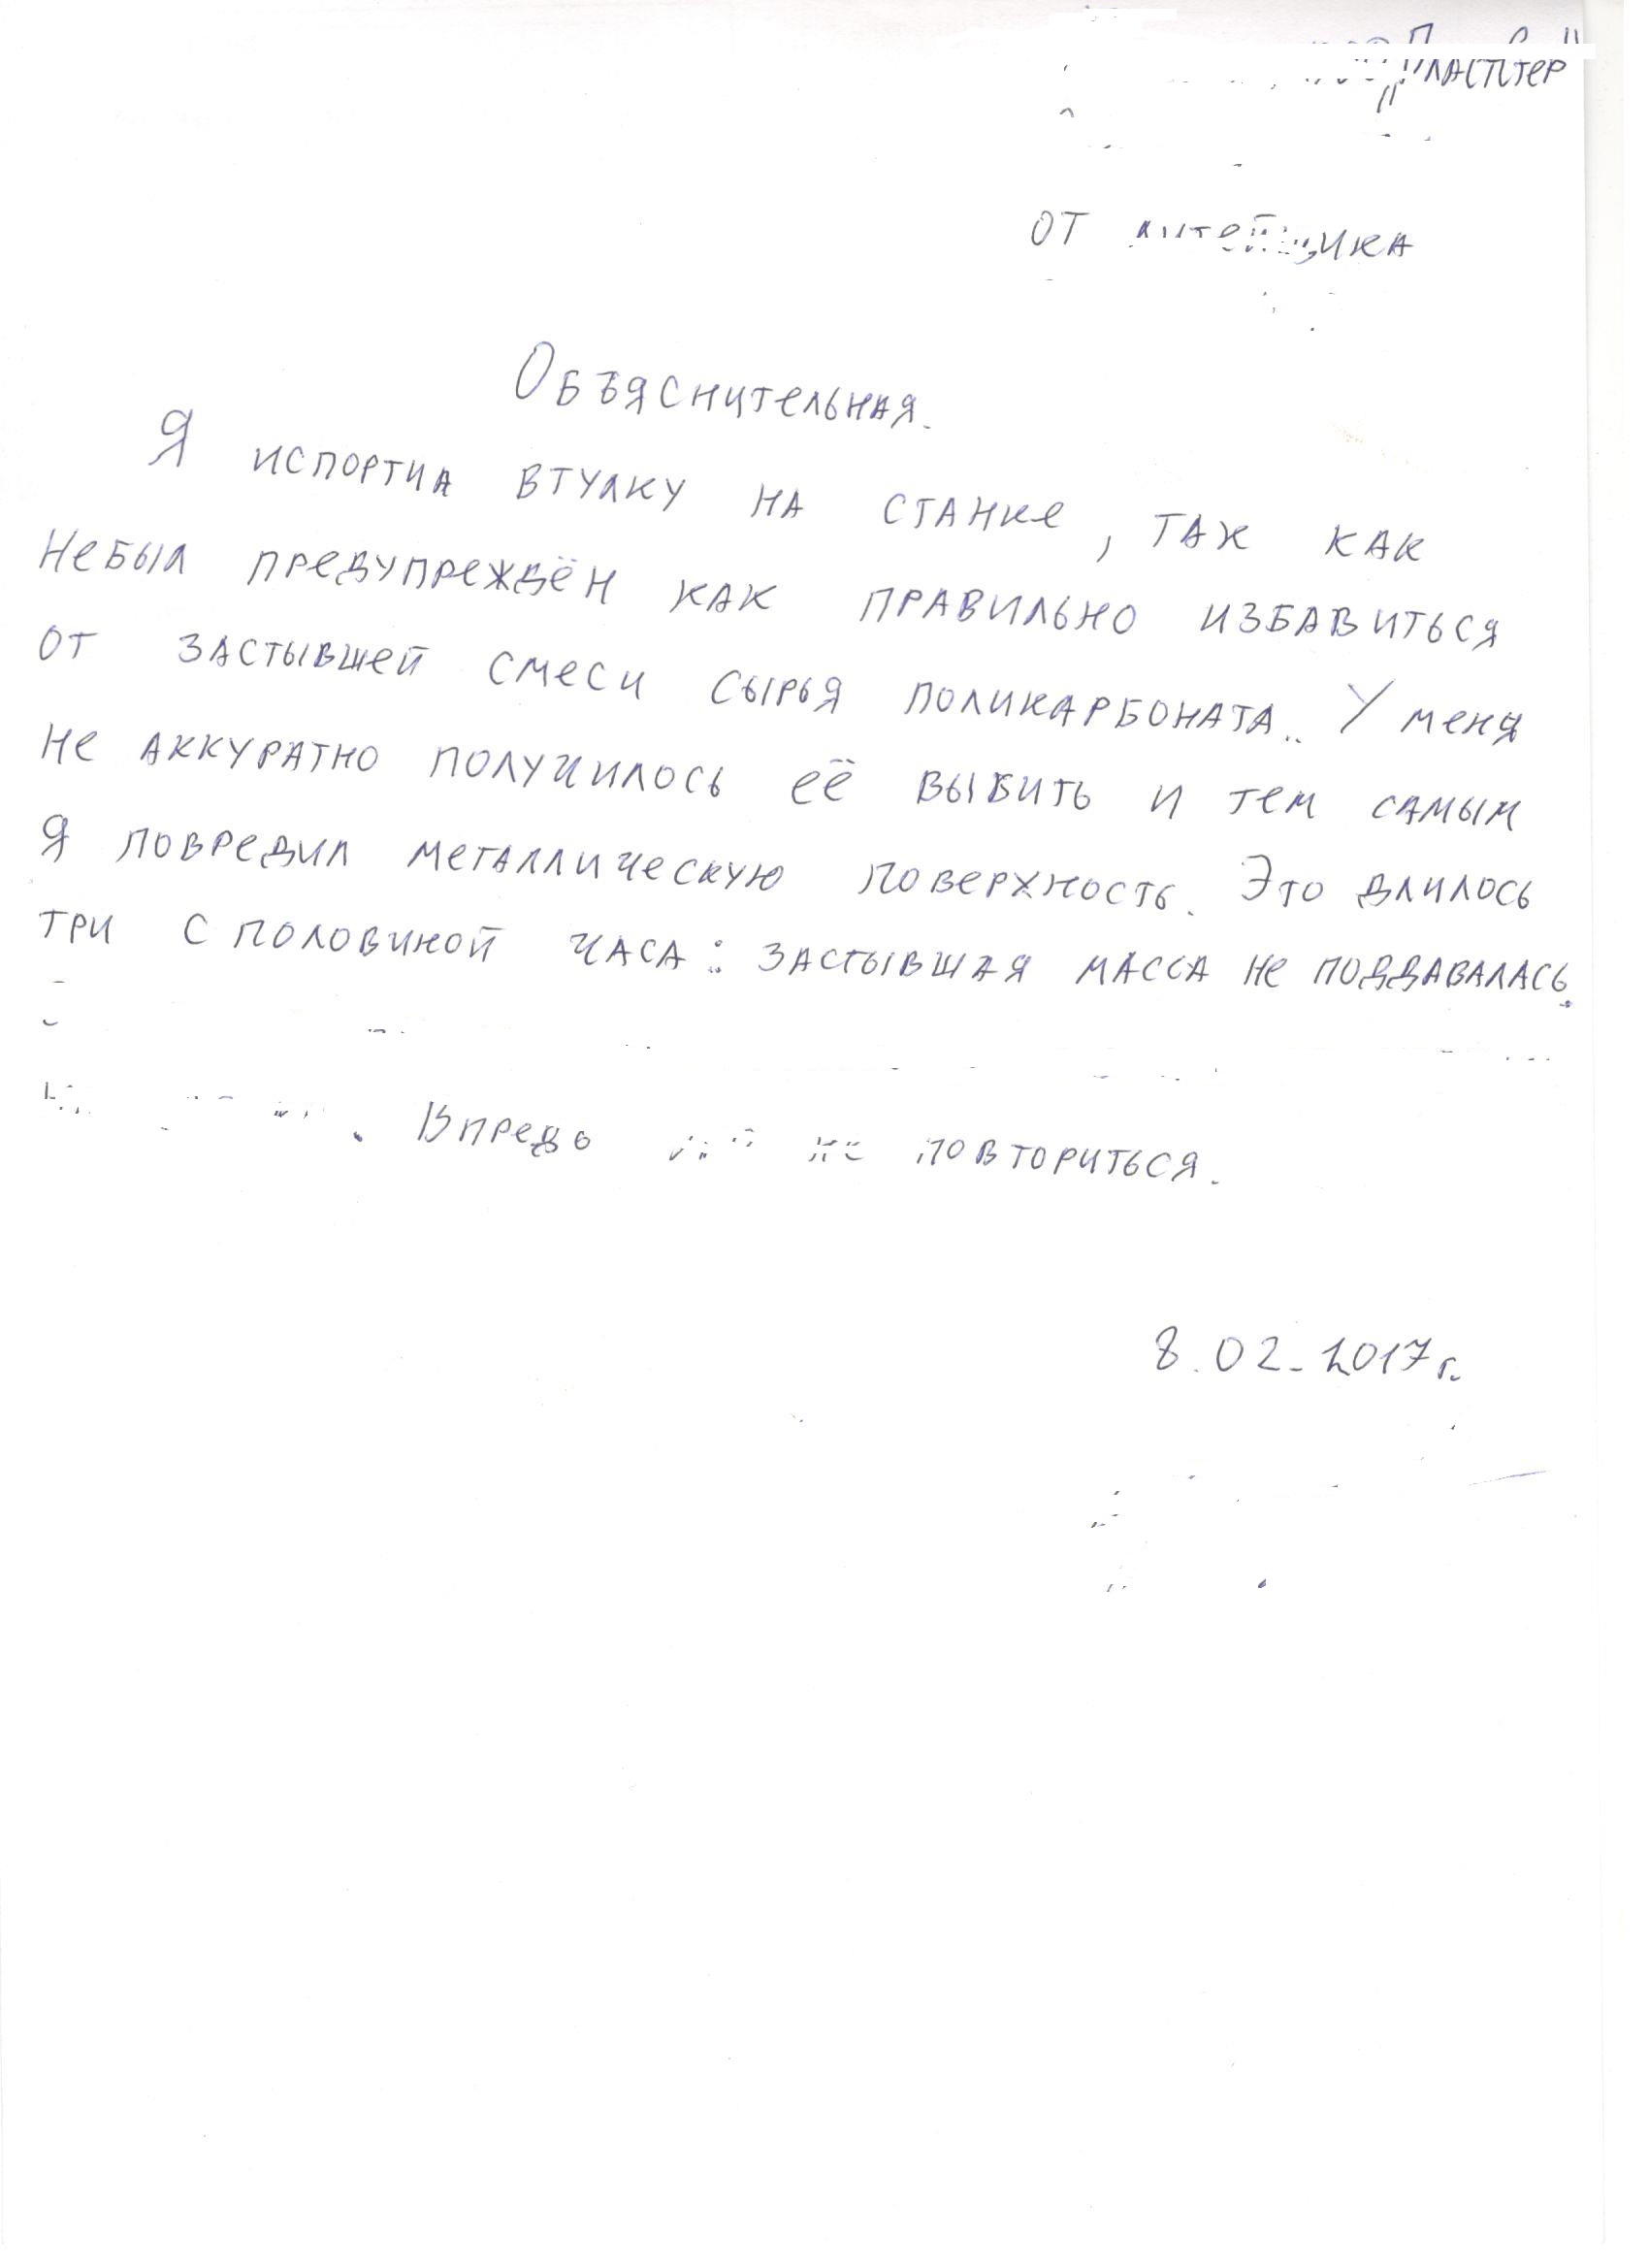 от литейщика
Объяснительная.
Я испортил втулку на станке, так как
небыл предупреждён как правильно избавиться
от застывшей смеси сырья поликарбоната.. У меня
не аккуратно получилось её выбить и тем самым
я повредил металлическую поверхность. Это длилось
три с половиной часа: застывшая масса не поддавалась.
. Впредь не повториться.
8.02.2017г.